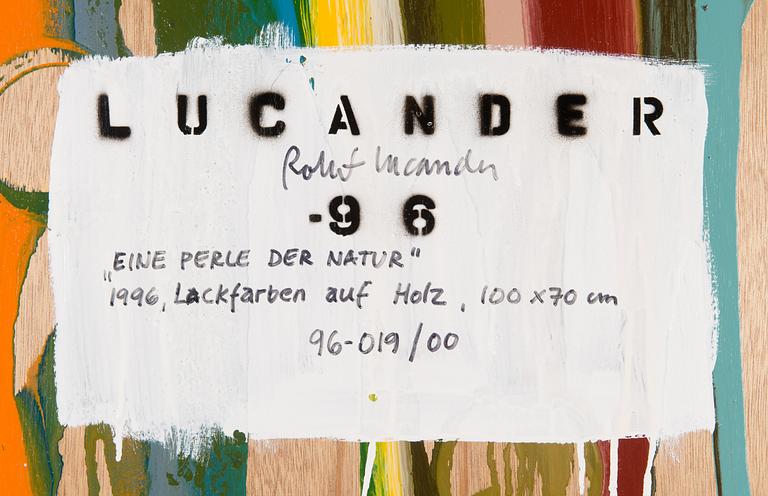 LUCANDER
Robert Lucander
-96
„EINE PERLE DER NATUR"
1996, Lackfarben auf Holz, 100 x 70 cm
96-019/00